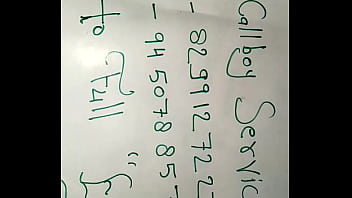 Call boy Servic
- 8299127227
- 945078857
to Full "